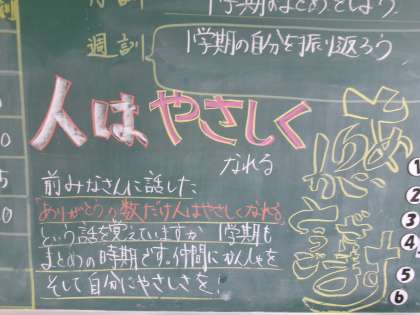 1学期のまとめをしよう
週訓
1学期の自分を振り返ろう
人は やさしく
なれる
前みなさんに話した
「ありがとうの数だけ人はやさしくなれる」
という話を覚えていますか 1学期も
まとめの時期です。仲間にかんしゃを
そして自分にやさしさを!
①
②
③
④
⑤
⑥